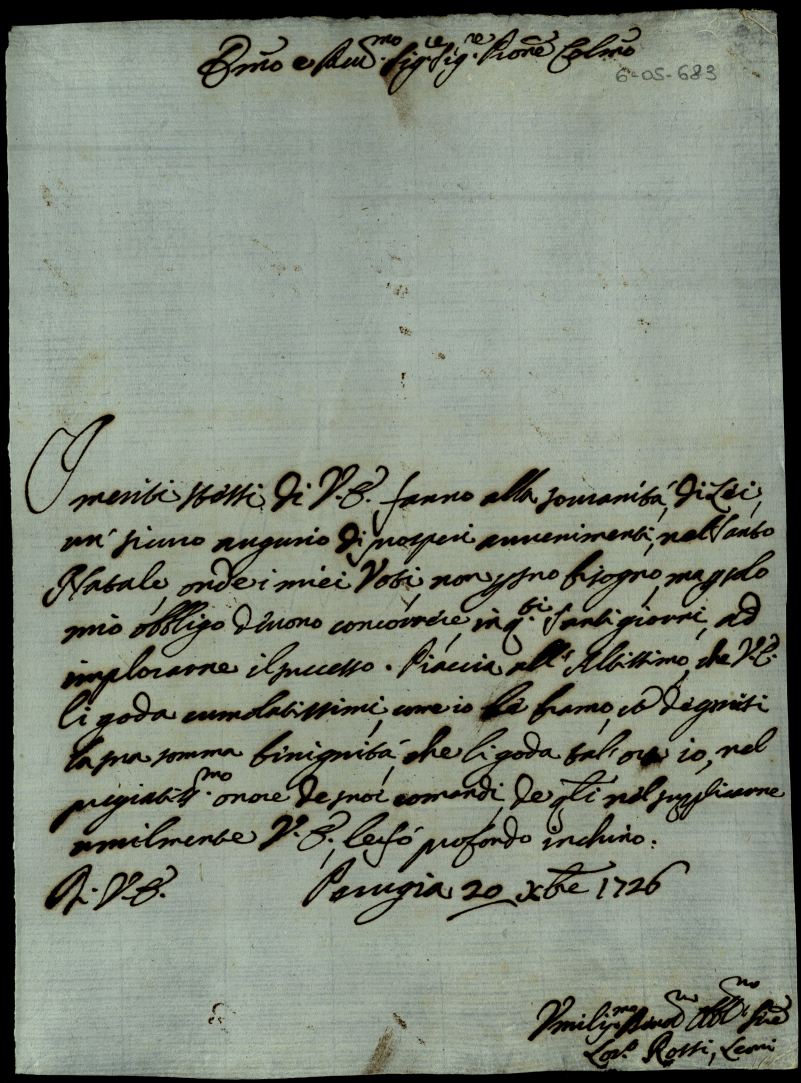 Emo e Rmo Sig.re Sig.re Pñe Colmo
6-05-683
I meriti stessi di V.E. fanno alla souranità di Lei
un' sicuro augurio di prosperi auuenimenti nel Santo
Natale, onde i miei Voti non ãno bisogno, ma p solo
mio obbligo deuono concorrere, in q.ti Santi giorni, ad
implorarne il successo. Piaccia all' Altissimo, che V.E.
li goda cumolatissimi, come io le bramo, e degniti
la sua somma binignità, che li goda tal' ora io, nel
pregiatiss.mo onore de suoi comandi, de q̃li nel supplicarne
umilmente V.E., le fò profondo inchino.
Di V.E.
Perugia 20 Xbre 1726
Vmiliss.mo Deuot.mo Obbl.mo Sre
Lod.o Rossi, Leoni